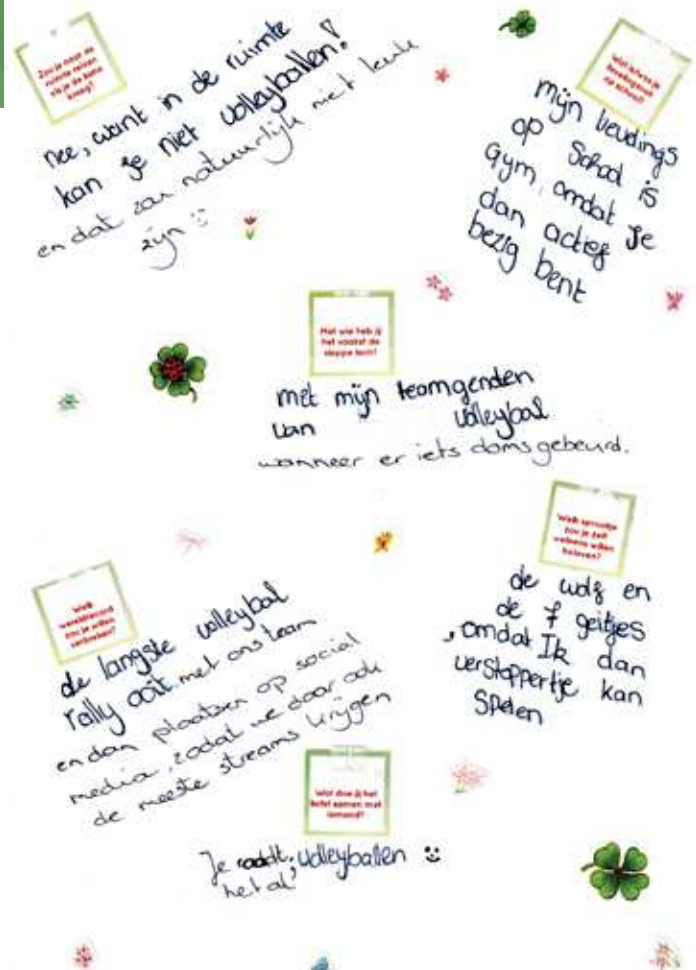 Zou je naar de
ruimte reizen
als je de kans
kreeg?
nee, want in de ruimte
kan je niet volleyballen!
en dat zou natuurlijk niet leuk
zijn :)
Wat is/was je
lievelingsvak
op school?
mijn lievelings
op School is
gym, omdat je
dan actief
bezig bent
Met wie heb jij
het vaakst de
slappe lach?
met mijn teamgenoten
van volleybal
wanneer er iets doms gebeurd.
Welk sprookje
zou je zelf
weleens willen
beleven?
de wolf en
de 7 geitjes
, omdat Ik dan
verstoppertje kan
Spelen
Welk
wereldrecord
zou je willen
verbreken?
de langste volleybal
rally ooit met ons team
en dan plaatsen op social
media, zodat we daar ook
de meeste streams krijgen
Wat doe jij het
liefst samen met
iemand?
Je raadt
het al, volleyballen :)